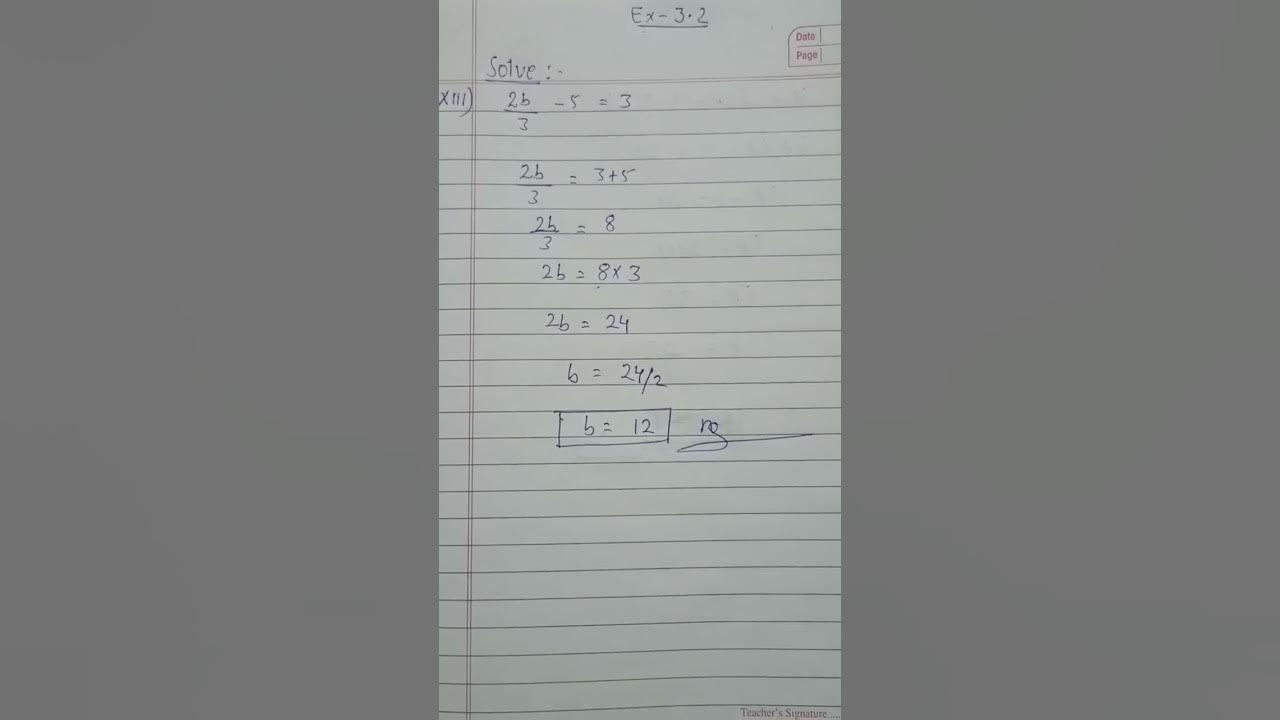 Ex-3.2
Date
Page
Solve :-
XIII) 2b/3 - 5 = 3
2b/3 = 3+5
2b/3 = 8
2b = 8×3
2b = 24
b = 24/2
b = 12
Teacher's Signature ....